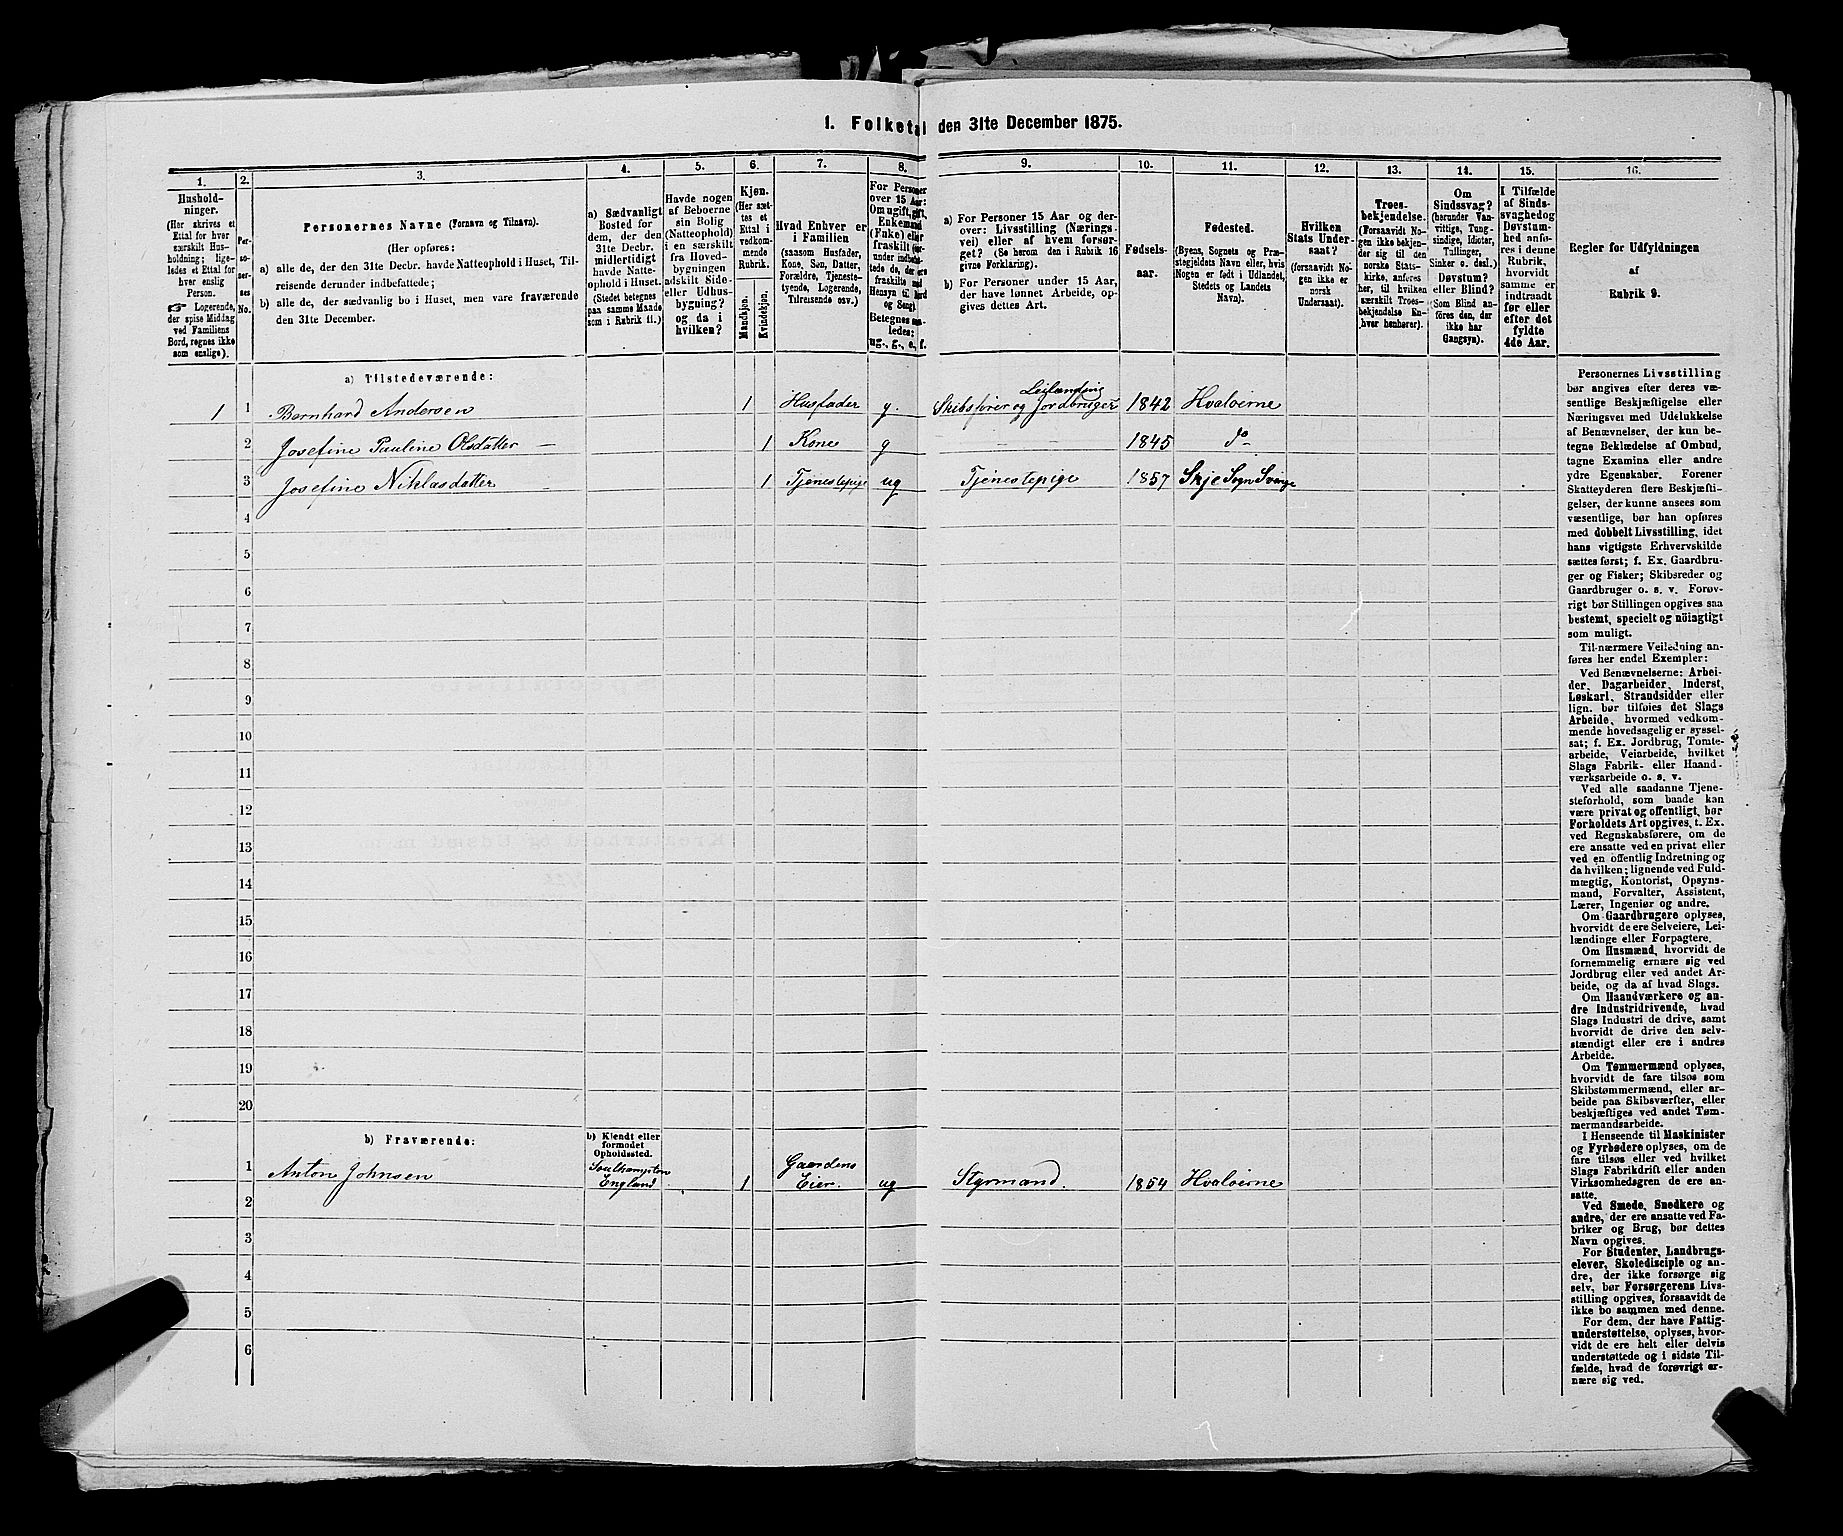 1. Folketal den 31te December 1875.
1. 2. 3. 4. 5. 6. 7. 8. 9. 10. 11. 12. 13. 14. 15. 16.
Hushold-
ninger.
(Her skrives et
Ettal for hver
særskilt Hus-
holdning; lige-
ledes et Ettal for
hver enslig
Person.
☞ Logerende,
der spise Middag
ved Familiens
Bord, regnes ikke
som enslige).
Per-
so-
ner-
nes
No.
Personernes Navne (Fornavn og Tilnavn).
(Her opføres:
a) alle de, der den 31te Decbr. havde Natteophold i Huset, Til-
reisende derunder indbefattede;
b) alle de, der sædvanlig bo i Huset, men vare fraværende
den 31te December.
a) Sædvanligt
Bosted for
dem, der den
31te Decbr.
midlertidigt
havde Natte-
ophold i Huset.
(Stedet betegnes
paa samme Maade
som i Rubrik 11.)
Havde nogen
af Beboerne
sin Bolig
(Natteophold)
i en særskilt
fra Hoved-
bygningen
adskilt Side-
eller Udhus-
bygning?
og da i
hvilken?
Kjøn.
(Her sæt-
tes et
Ettal i
vedkom-
mende
Rubrik.
Mandkjøn.
Kvindekjøn.
Hvad Enhver er
i Familien
(saasom Husfader,
Kone, Søn, Datter,
Forældre, Tjeneste-
tyende, Logerende,
Tilreisende osv.)
For Personer
over 15 Aar:
Om ugift, gift,
Enkemand
(Enke) eller
fraskilt
Betegnes saa-
ledes:
ug., g., e., f.
a) For Personer 15 Aar og der-
over: Livsstilling (Nærings-
vei) eller af hvem forsør-
get? (Se herom den i Rubrik 16
givne Forklaring).
b) For Personer under 15 Aar,
der have lønnet Arbeide, op-
gives dettes Art.
Fødsels-
aar.
Fødested.
(Byens, Sognets og Præ-
stegjeldets Navn eller, hvis
Nogen er født i Udlandet,
Stedets og Landets
Navn).
Hvilken
Stats Under-
saat?
(forsaavidt No-
gen ikke er
norsk
Undersaat).
Troes-
bekjendelse.
(Forsaavidt No-
gen ikke bekjen-
der sig til den
norske Stats-
kirke, anføres
her, til hvilken
særskilt Troes-
bekjendelse En-
hver henhører).
Om
Sindssvag?
(herunder Van-
vittige, Tung-
sindige, Idioter,
Tullinger,
Sinker o. desl.)
Døvstum?
eller Blind?
(Som Blind an-
føres den, der
ikke har
Gangsyn).
I Tilfælde
af Sinds-
svaghed og
Døvstum-
hed anfø-
res i denne
Rubrik,
hvorvidt
samme er
indtraadt
før eller
efter det
fyldte
4de Aar.
Regler for Udfyldningen
af
Rubrik 9.
a) Tilstedeværende:
1 1 Bernhard Andersen 1 Husfader g. Skibsfører og Leilænding Jordbruger 1842 Hvaløerne
2 Josefine Pauline Olsdatter — 1 Kone g — — 1845 do
3 Josefine Niklasdatter 1 Tjenestepige ug Tjenestepige 1857 Skje Sogn
4
5
6
7
8
9
10
11
12
13
14
15
16
17
18
19
20
b) Fraværende:
b) Kjendt eller
formodet
Opholdssted.
1 Anton Johnsen Southampton England 1 Gaardens Eier. ug Styrmand. 1854 Hvaløerne
2
3
4
5
6
Personernes Livsstilling
bør angives efter deres væ-
sentlige Beskjæftigelse eller
Næringsvei med Udelukkelse
af Benævnelser, der kun be-
tegne Beklædelse af Ombud,
tagne Examina eller andre
ydre Egenskaber. Forener
Skatteyderen flere Beskjæfti-
gelser, der kunne ansees som
væsentlige, bør han opføres
med dobbelt Livsstilling, idet
hans vigtigste Erhvervskilde
sættes først; f. Ex. Gaardbru-
ger og Fisker; Skibsreder og
Gaardbruger o. s. v. Forøv-
rigt bør Stillingen opgives saa
bestemt, specielt og nøiagtigt
som muligt.
Til nærmere Veiledning an-
føres her endel Exempler:
Ved Benævnelserne: Arbei-
der, Dagarbeider, Inderst,
Løskarl, Strandsidder eller
lign. bør tilføies det Slags
Arbeide, hvormed vedkom-
mende hovedsagelig er syssel-
sat; f. Ex. Jordbrug, Tomte-
arbeide, Veiarbeide, hvilket
Slags Fabrik- eller Haand-
værksarbeide o. s. v.
Ved alle saadanne Tjene-
steforhold, som baade kan
være privat og offentligt, bør
Forholdets Art opgives, t. Ex.
ved Regnskabsførere, om de
ere ansatte ved en privat eller
ved en offentlig Indretning og
da hvilken; lignende ved Fuld-
mægtig, Kontorist, Opsyns-
mand, Forvalter, Assistent,
Lærer, Ingeniør og andre.
Om Gaardbrugere oplyses,
hvorvidt de ere Selveiere, Lei-
lændinge eller Forpagtere.
Om Husmænd, hvorvidt de
fornemmelig ernære sig ved
Jordbrug eller ved andet Ar-
beide, og da af hvad Slags.
Om Haandværkere og an-
dre Industridrivende, hvad
Slags Industri de drive, samt
hvorvidt de drive den selv-
stændigt eller ere i andres
Arbeide.
Om Tømmermænd oplyses,
hvorvidt de fare tilsøs som
Skibstømmermænd, eller ar-
beide paa Skibsværfter, eller
beskjæftiges ved andet Tøm-
mermandsarbeide.
I Henseende til Maskinister
og Fyrbødere oplyses, om de
fare tilsøs eller ved hvilket
Slags Fabrikdrift eller anden
Virksomhedsgren de ere an-
satte.
Ved Smede, Snedkere og
andre, der ere ansatte ved Fa-
briker og Brug, bør dettes
Navn opgives.
For Studenter, Landbrugs-
elever, Skoledisciple og an-
dre, der ikke forsørge sig
selv, bør Forsørgerens Livs-
stilling opgives, forsaavidt de
ikke bo sammen med denne.
For dem, der have Fattig-
understøttelse, oplyses, hvor-
vidt de ere helt eller delvis
understøttede og i sidste Til-
fælde, hvad de forøvrigt er-
nære sig ved.